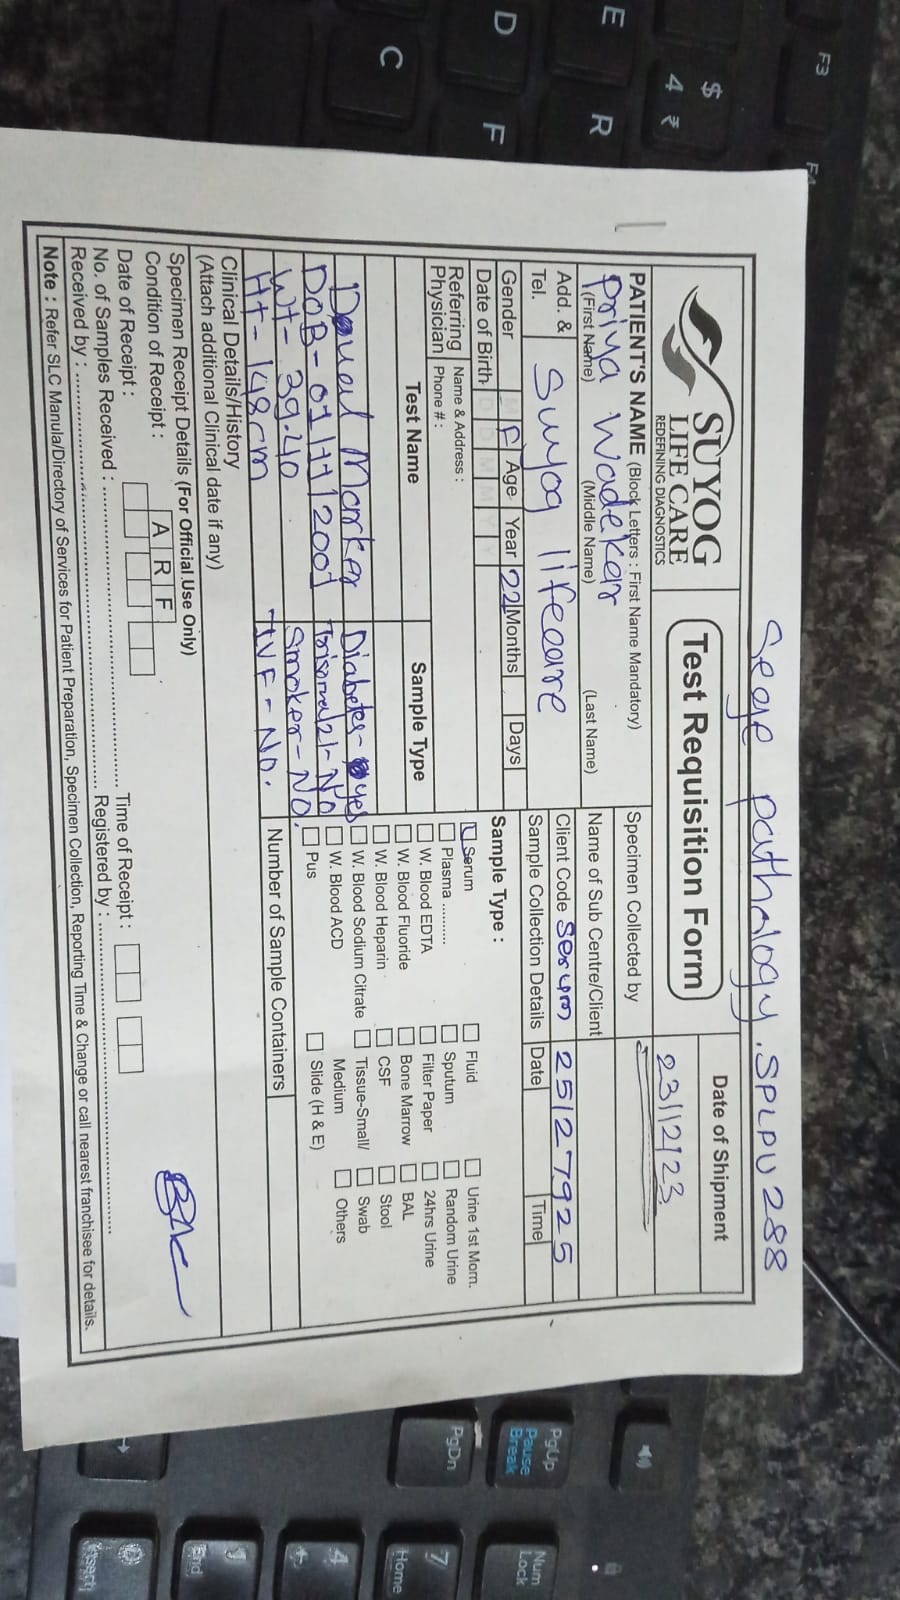 Seage pathalogy. SPLPU288
SUYOG
LIFE CARE
REDEFINING DIAGNOSTICS
Test Requisition Form
Date of Shipment
23/12/23
PATIENT'S NAME (Block Letters : First Name Mandatory)
Priya Wadekar
(First Name) (Middle Name) (Last Name)
Specimen Collected by
Name of Sub Centre/Client
Add. & Tel. Suyog lifecare
Client Code Serum 25127925
Gender M F Age Year 22 Months Days
Sample Collection Details Date Time
Date of Birth D D M M Y Y
Referring Physician
Name & Address :
Phone # :
Test Name Sample Type
Marker Diabetes - yes
DOB - 01/11/2001 Trisomy21 - NO
Wt - 39.40 Smoker - NO.
Ht - 148cm IVF - NO.
Sample Type :
Serum Fluid Urine 1st Morn.
Plasma .......... Sputum Random Urine
W. Blood EDTA Filter Paper 24hrs Urine
W. Blood Fluoride Bone Marrow BAL
W. Blood Heparin CSF Stool
W. Blood Sodium Citrate Tissue-Small/ Swab
W. Blood ACD Medium Others
Pus Slide (H & E)
Number of Sample Containers
Clinical Details/History
(Attach additional Clinical date if any)
Specimen Receipt Details (For Official Use Only)
Condition of Receipt : A R F
Date of Receipt : Time of Receipt :
No. of Samples Received :
Received by : Registered by :
Note : Refer SLC Manula/Directory of Services for Patient Preparation, Specimen Collection, Reporting Time & Change or call nearest franchisee for details.
E
D
C
R
F
$
4 ₹
F3
F4
PgUp
Pause
Break
PgDn
Num
Lock
7
Home
4
End
Insert